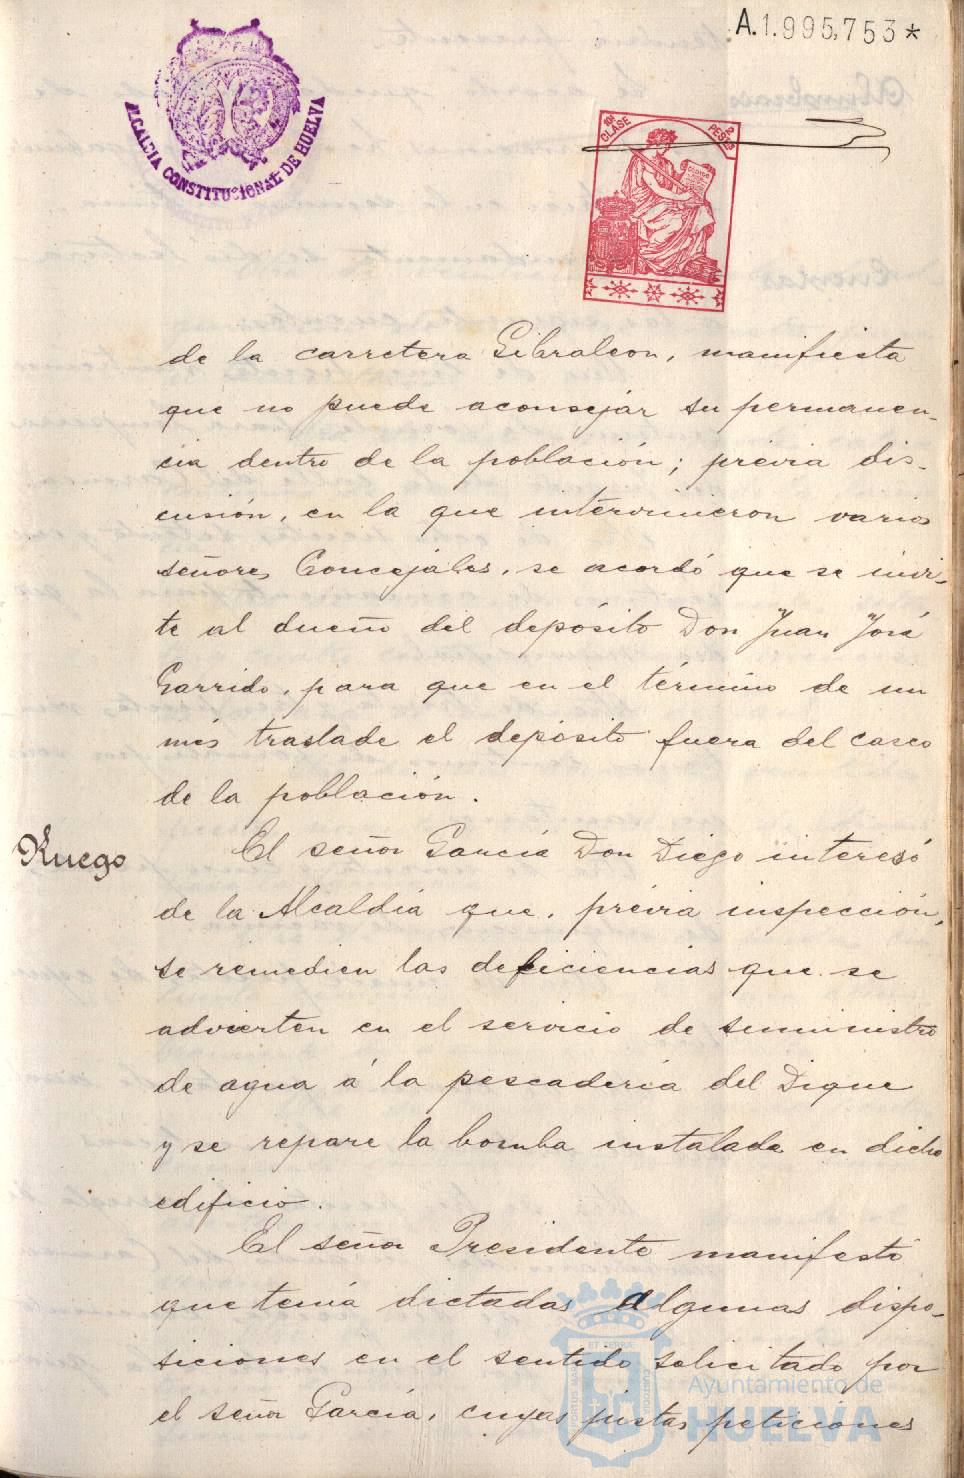 A.1.995,753*
ALCALDIA CONSTITUCIONAL DE HUELVA
CLASE
PESETAS
de la carretera Gibraleon, manifiesta
que no puede aconsejar su permanen-
cia dentro de la población; prévia dis-
cusión, en la que intervinieron varios
señores Concejales, se acordó que se invi-
te al dueño del depósito Don Juan José
Garrido, para que en el término de un
més traslade el depósito fuera del casco
de la población.
Ruego
El señor García Don Diego interesó
de la Alcaldía que, prévia inspección,
se remedien las deficiencias que se
advierten en el servicio de suministro
de agua á la pescadería del Dique
y se repare la bomba instalada en dicho
edificio.
El señor Presidente manifestó
que tenía dictadas algunas dispo-
siciones en el sentido solicitado por
el señor García, cuyas justas peticiones
Ayuntamiento de
HUELVA